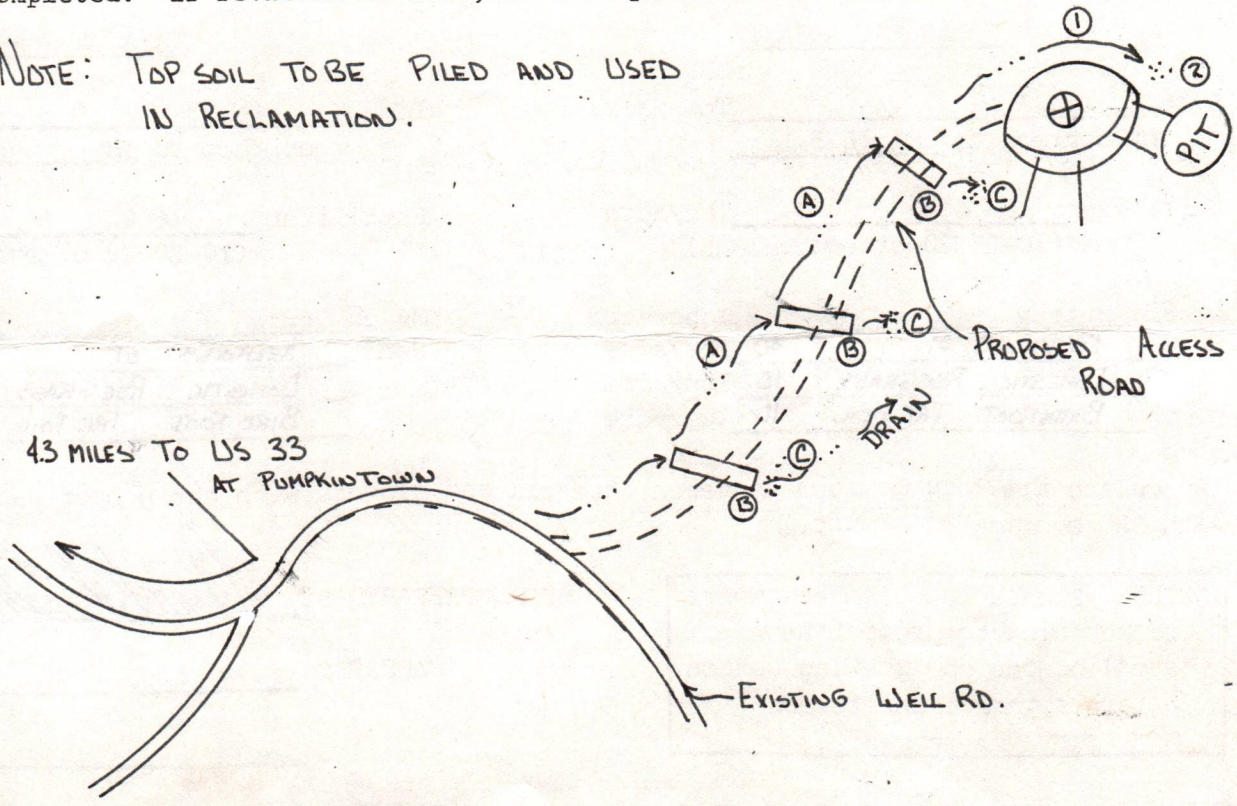 NOTE: TOP SOIL TO BE PILED AND USED
IN RECLAMATION.
①
②
PIT
Ⓐ
Ⓑ
Ⓒ
Ⓐ
Ⓑ
Ⓒ
PROPOSED ACCESS
ROAD
Ⓒ
DRAIN
Ⓑ
4.3 MILES TO US 33
AT PUMPKINTOWN
EXISTING WELL RD.